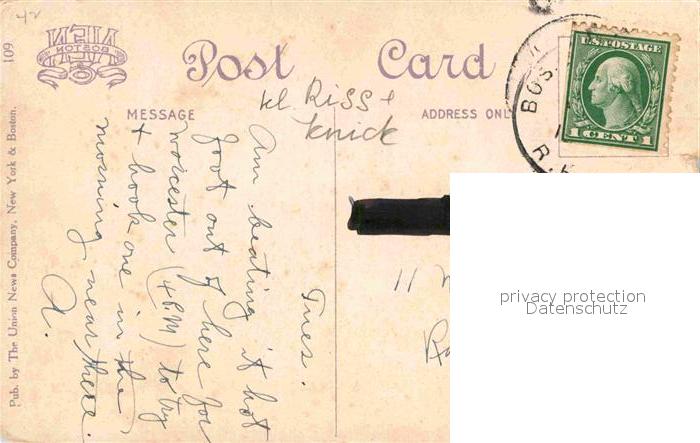 42
109
NEW
BOSTON
Post Card
MESSAGE
ADDRESS ONL
U.S. POSTAGE
1 CENT 1
BOS
R.
Riss &
Knick
Tues.
Am beating it hot
foot out of here for
Worcester (4 P.M) to try
+ hook one in the
morning near there.
A.
11
Pub. by The Union News Company, New York & Boston.
privacy protection
Datenschutz